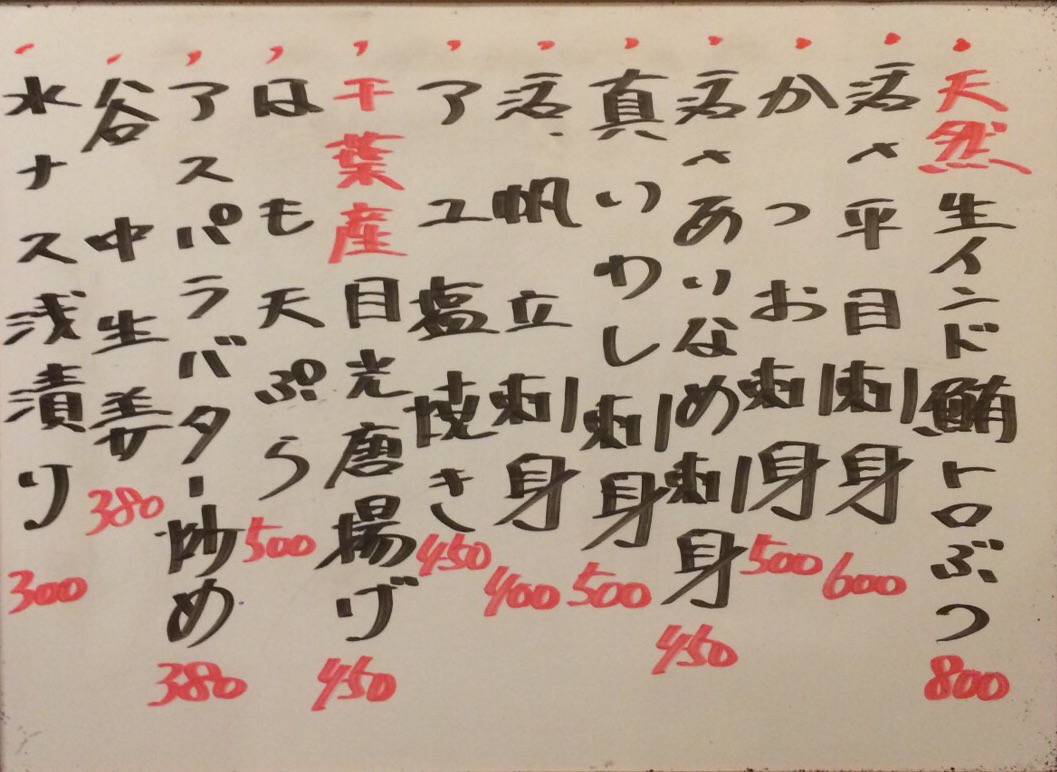 天然生インド鮪トロぶつ 800
活〆平目刺身 600
かつお刺身 500
活〆あいなめ刺身 450
真いわし刺身 500
活帆立刺身 400
アユ塩焼き 450
千葉産目光唐揚げ 450
はも天ぷら 500
アスパラバター炒め 380
谷中生姜 380
水ナス浅漬り 300